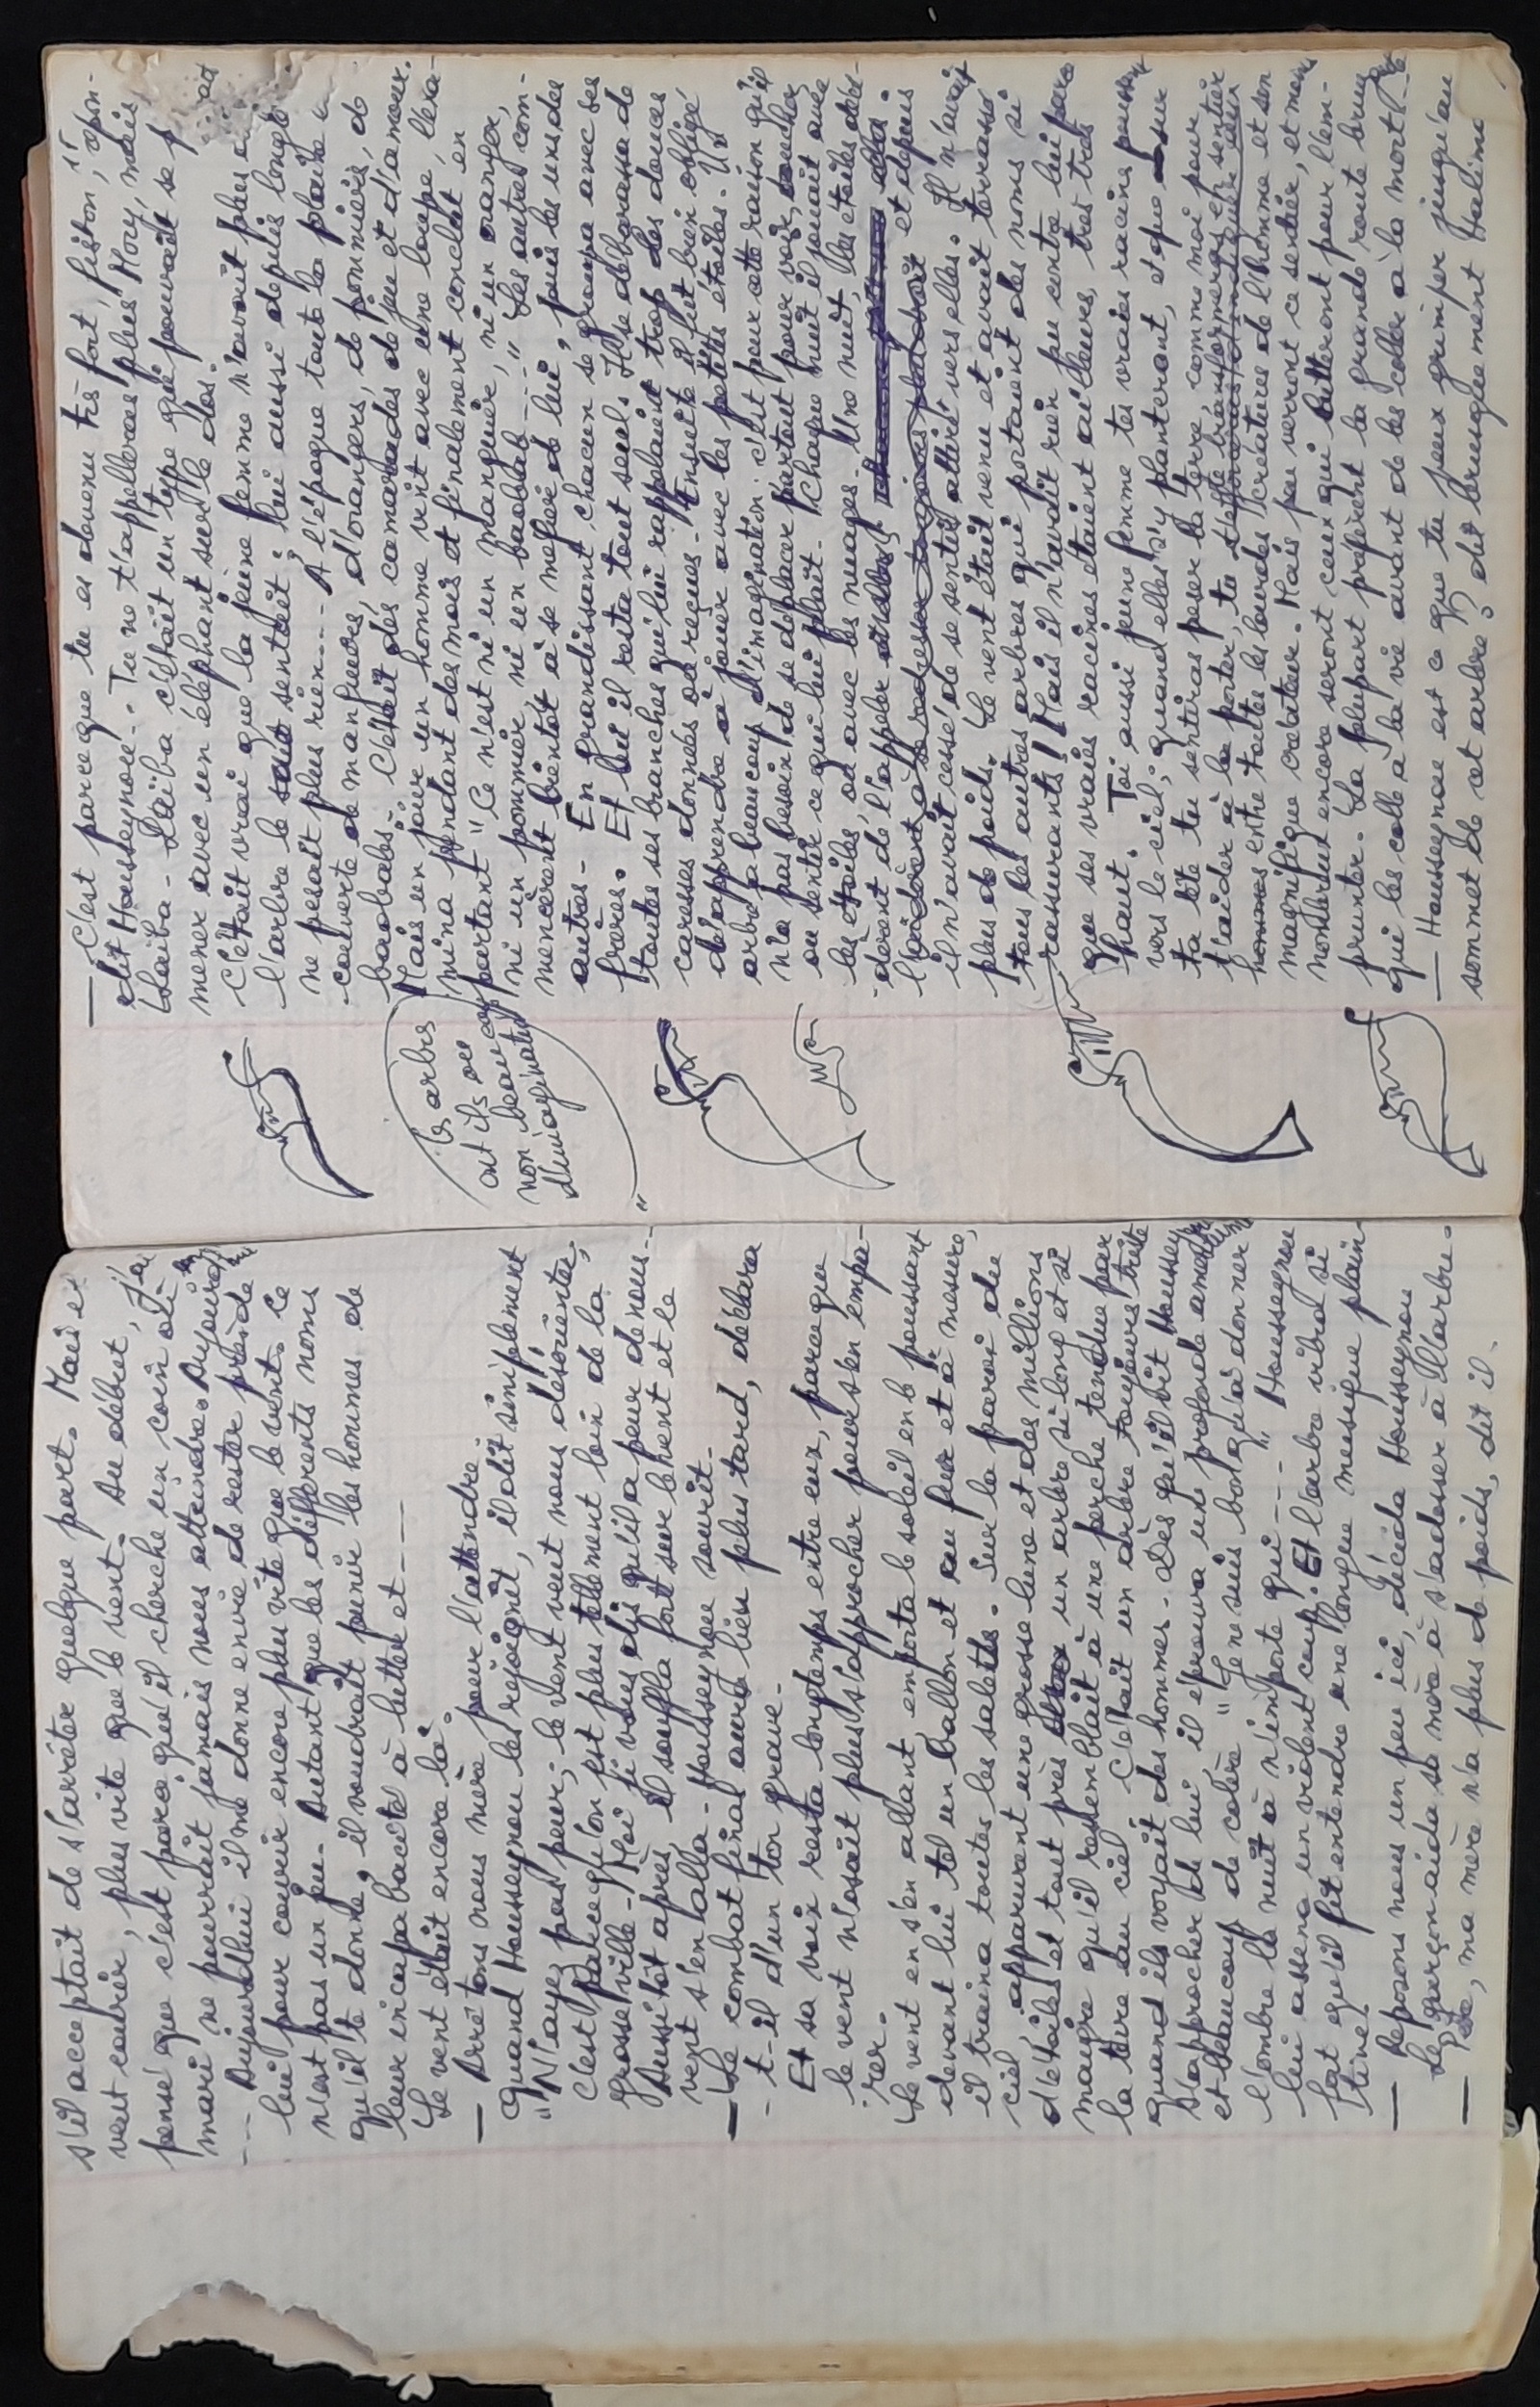 s'il acceptait de s'arrêter quelque part. Mais il
veut courir, plus vite que le vent. Au début, j'ai
pensé que c'est parce qu'il cherche un coin où
mari ne pourrait jamais nous atteindre. Aujourd'
--- Aujourd'hui il me donne envie de rester près de
lui pour courir encore plus vite que le vent. Ce
n'est pas un jeu. Autant que les différents noms
qu'il te donne, il voudrait punir les hommes de
leur incapabacité à lutter et ----
Le vent était encore là.
— Arretons nous mère pour l'attendre.
Quand Housseynou les rejoignit, il dit simplement
"N'ayez pas peur; le vent veut nous désorienter,
C'est parce qu'on est plus tellement loin de la
grosse ville. Moi je vous dis qu'il a peur de nous--
Aussitôt après, il souffla fort sur le vent et le
vent s'en alla. Housseynou sourit.
— Le combat final aura lieu plus tard, déclara
- t-il d'un ton grave.
Et sa voix resta longtemps entre eux, parce que
le vent n'osait plus s'approcher pour s'en empa-
rer.
Le vent en s'en allant, emporta le soleil en le poussant
devant lui tel un ballon et au fur et à mesure,
il traina toutes les saletés. Sur la paroi du
ciel, apparurent une grosse lune et des millions
d'étoiles et tout près un arbre si long et si
maigre qu'il ressemblait à une perche tendue par
la terre au ciel. C'était un arbre toujours triste
quand il voyait des hommes. Dès qu'il vit Housseynou
s'approcher de lui, il éprouva une profonde amertume
et beaucoup de colère "Je ne suis bon qu'à donner
l'ombre la nuit à n'importe qui ---" Housseynou
lui assena un violent coup. Et l'arbre vibra si
fort qu'il fit entendre une longue musique plain-
tive!
— Reposons nous un peu ici, décida Housseynou
Le garçon aida sa mère à s'adosser à l'arbre.
— ma mère n'a plus de poids, dit-il.
— C'est parce que tu es devenu très fort, fiston,
dit Housseynou. Tu ne t'appelleras plus Mory, mais
Laïba. Laïba c'était un type qui pouvait se p
mener avec un éléphant sur le dos.
C'était vrai que la jeune femme n'avait plus
l'arbre le sentait; lui aussi depuis longt
ne pesait plus rien --- A l'époque toute la plaine
couverte de manguiers, d'orangers, de pommiers, de
baobabs. C'était des camarades de jeu et d'amour.
Mais un jour un homme vint avec une loupe, l'exa-
mina pendant des mois et finalement conclut en
partant "Ce n'est ni un manguier, ni un oranger,
ni un pommier, ni un baobab ---" Les autres com-
mencèrent bientôt à se méfier de lui, puis les uns des
autres. En grandissant, chacun se groupa avec ses
frères. Et lui il resta tout seul. Il se débarassa de
toutes ses branches qui lui rappelaient trop les douces
caresses données ou reçues. Ensuite il fut bien obligé
d'apprendre à jouer avec les petites étoiles. Un
arbre a beaucoup d'imagination: c'est pour cette raison qu'il
n'a pas besoin de se déplacer partout pour voir, toucher
ou sentir ce qui lui plait. Chaque nuit il jouait avec
les étoiles, ou avec les nuages. Une nuit, les étoiles déci-
dèrent de l'appeler elles
l'aidèrent à se redresser et depuis
il n'avait cessé de se sentir attiré vers elles. Il n'avait
plus de poids. Le vent était venu et avait terrassé
tous les autres arbres qui portaient des noms si
rassurants! Mais il n'avait rien pu contre lui parce
que ses vraies racines étaient ailleurs, très très
haut. Toi aussi jeune femme tes vraies racines poussent
vers le ciel; quand elles s'y planteront, et que sur
ta tête tu sentiras peser la terre, comme moi pour
t'aider à la porter, tu te transformeras en sentier
entre toutes les lourdes créatures de l'homme et son
magnifique créateur. Mais peu verront ce sentier, et moins
nombreux encore seront ceux qui lutteront pour l'em-
prunter. La plupart préfèrent la grande route brune
qui les colle à la vie avant de les coller à la mort.
— Housseynou est ce que tu peux grimper jusqu'au
sommet de cet arbre? dit brusquement Halima
les arbres
ont ils ou
non beaucoup
d'imagination